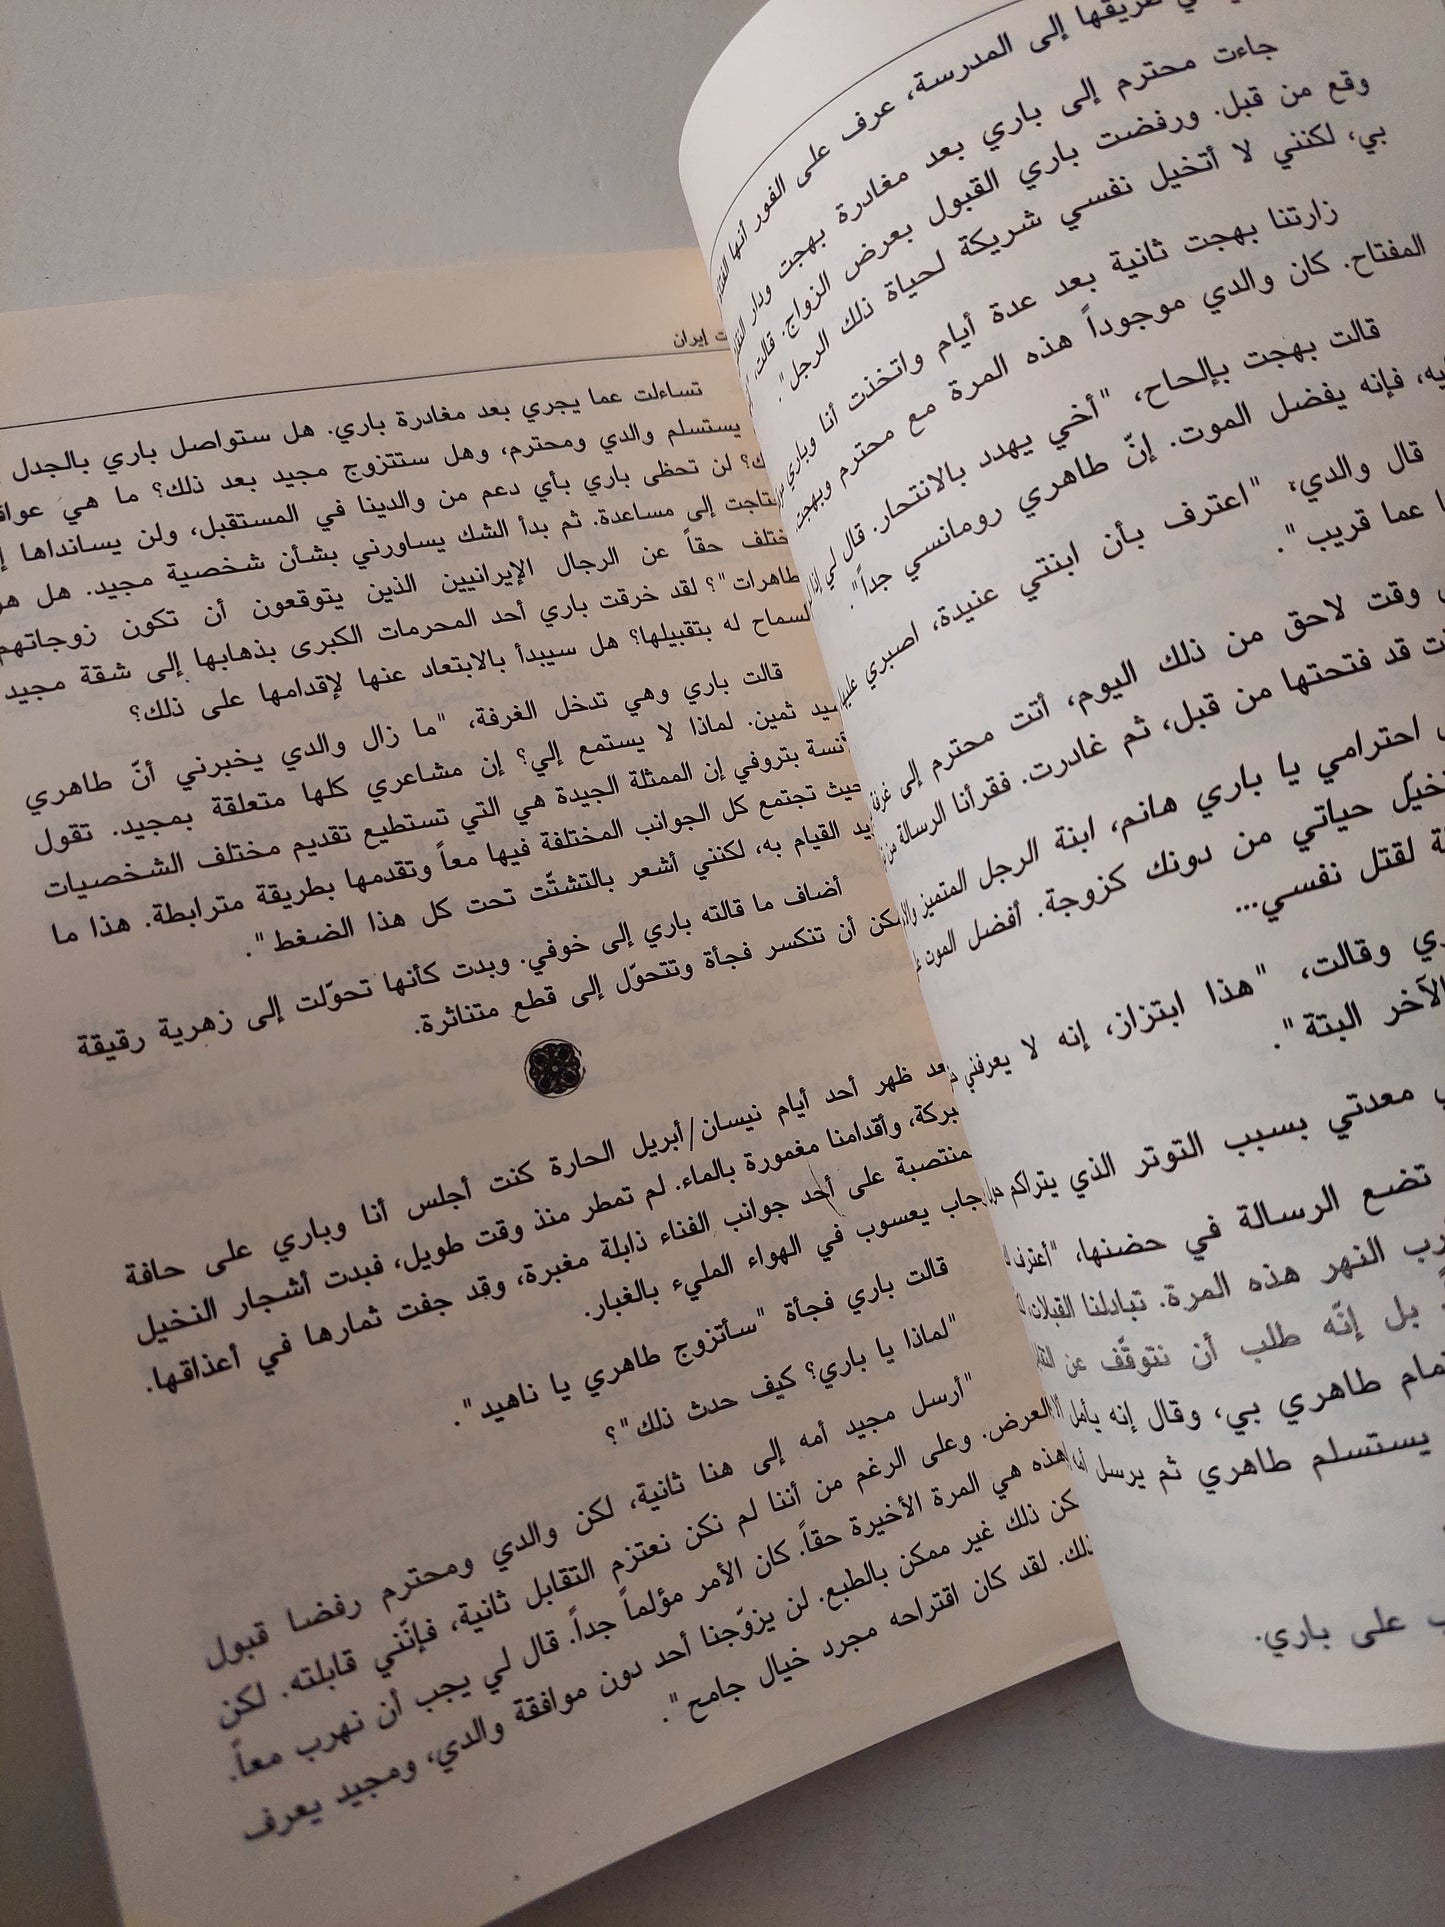 طريقها إلى المدرسة، عرف على الفور أنها
جاءت محترم إلى باري بعد مغادرة بهجت ودار
وقع من قبل. ورفضت باري القبول بعرض الزواج. قالت،
بي، لكنني لا أتخيل نفسي شريكة لحياة ذلك الرجل".
زارتنا بهجت ثانية بعد عدة أيام واتخذت أنا وباري
المفتاح. كان والدي موجوداً هذه المرة مع محترم وبهجت.
قالت بهجت بإلحاح، "أخي يهدد بالانتحار. قال لي
فإنه يفضل الموت. إنّ طاهري رومانسي جداً".
قال والدي، "اعترف بأن ابنتي عنيدة، اصبري عليها
عما قريب".
وقت لاحق من ذلك اليوم، أتت محترم إلى غرفة
قد فتحتها من قبل، ثم غادرت. فقرأنا الرسالة
احترامي يا باري هانم، ابنة الرجل المتميز
حياتي من دونك كزوجة. أفضل الموت
لقتل نفسي...
وقالت، "هذا ابتزاز، إنه لا يعرفني
الآخر البتة".
معدتي بسبب التوتر الذي يتراكم
تضع الرسالة في حضنها، "أعترف
النهر هذه المرة. تبادلنا القبلات،
بل إنّه طلب أن نتوقّف عن
طاهري بي، وقال إنه يأمل
يستسلم طاهري ثم يرسل
على باري.
إيران
تساءلت عما يجري بعد مغادرة باري. هل ستواصل باري بالجدل
يستسلم والدي ومحترم، وهل ستتزوج مجيد بعد ذلك؟ ما هي
لن تحظى باري بأي دعم من والدينا في المستقبل، ولن يسانداها
إلى مساعدة. ثم بدأ الشك يساورني بشأن شخصية مجيد. هل
حقاً عن الرجال الإيرانيين الذين يتوقعون أن تكون زوجاتهم
طاهرات"؟ لقد خرقت باري أحد المحرمات الكبرى بذهابها إلى شقة مجيد
السماح له بتقبيلها؟ هل سيبدأ بالابتعاد عنها لإقدامها على ذلك؟
قالت باري وهي تدخل الغرفة، "ما زال والدي يخبرني أنّ طاهري
ثمين. لماذا لا يستمع إلي؟ إن مشاعري كلها متعلقة بمجيد. تقول
بتروفي إن الممثلة الجيدة هي التي تستطيع تقديم مختلف الشخصيات
حيث تجتمع كل الجوانب المختلفة فيها معاً وتقدمها بطريقة مترابطة. هذا ما
القيام به، لكنني أشعر بالتشتّت تحت كل هذا الضغط".
أضاف ما قالته باري إلى خوفي. وبدت كأنها تحوّلت إلى زهرية رقيقة
أن تنكسر فجأة وتتحوّل إلى قطع متناثرة.
بعد ظهر أحد أيام نيسان/أبريل الحارة كنت أجلس أنا وباري على حافة
بركة، وأقدامنا مغمورة بالماء. لم تمطر منذ وقت طويل، فبدت أشجار النخيل
المنتصبة على أحد جوانب الفناء ذابلة مغبرة، وقد جفت ثمارها في أعذاقها.
يعسوب في الهواء المليء بالغبار.
قالت باري فجأة "سأتزوج طاهري يا ناهيد".
"لماذا يا باري؟ كيف حدث ذلك"؟
"أرسل مجيد أمه إلى هنا ثانية، لكن والدي ومحترم رفضا قبول
العرض. وعلى الرغم من أننا لم نكن نعتزم التقابل ثانية، فإنّني قابلته. لكن
هذه هي المرة الأخيرة حقاً. كان الأمر مؤلماً جداً. قال لي يجب أن نهرب معاً.
ذلك غير ممكن بالطبع. لن يزوّجنا أحد دون موافقة والدي، ومجيد يعرف
ذلك. لقد كان اقتراحه مجرد خيال جامح".